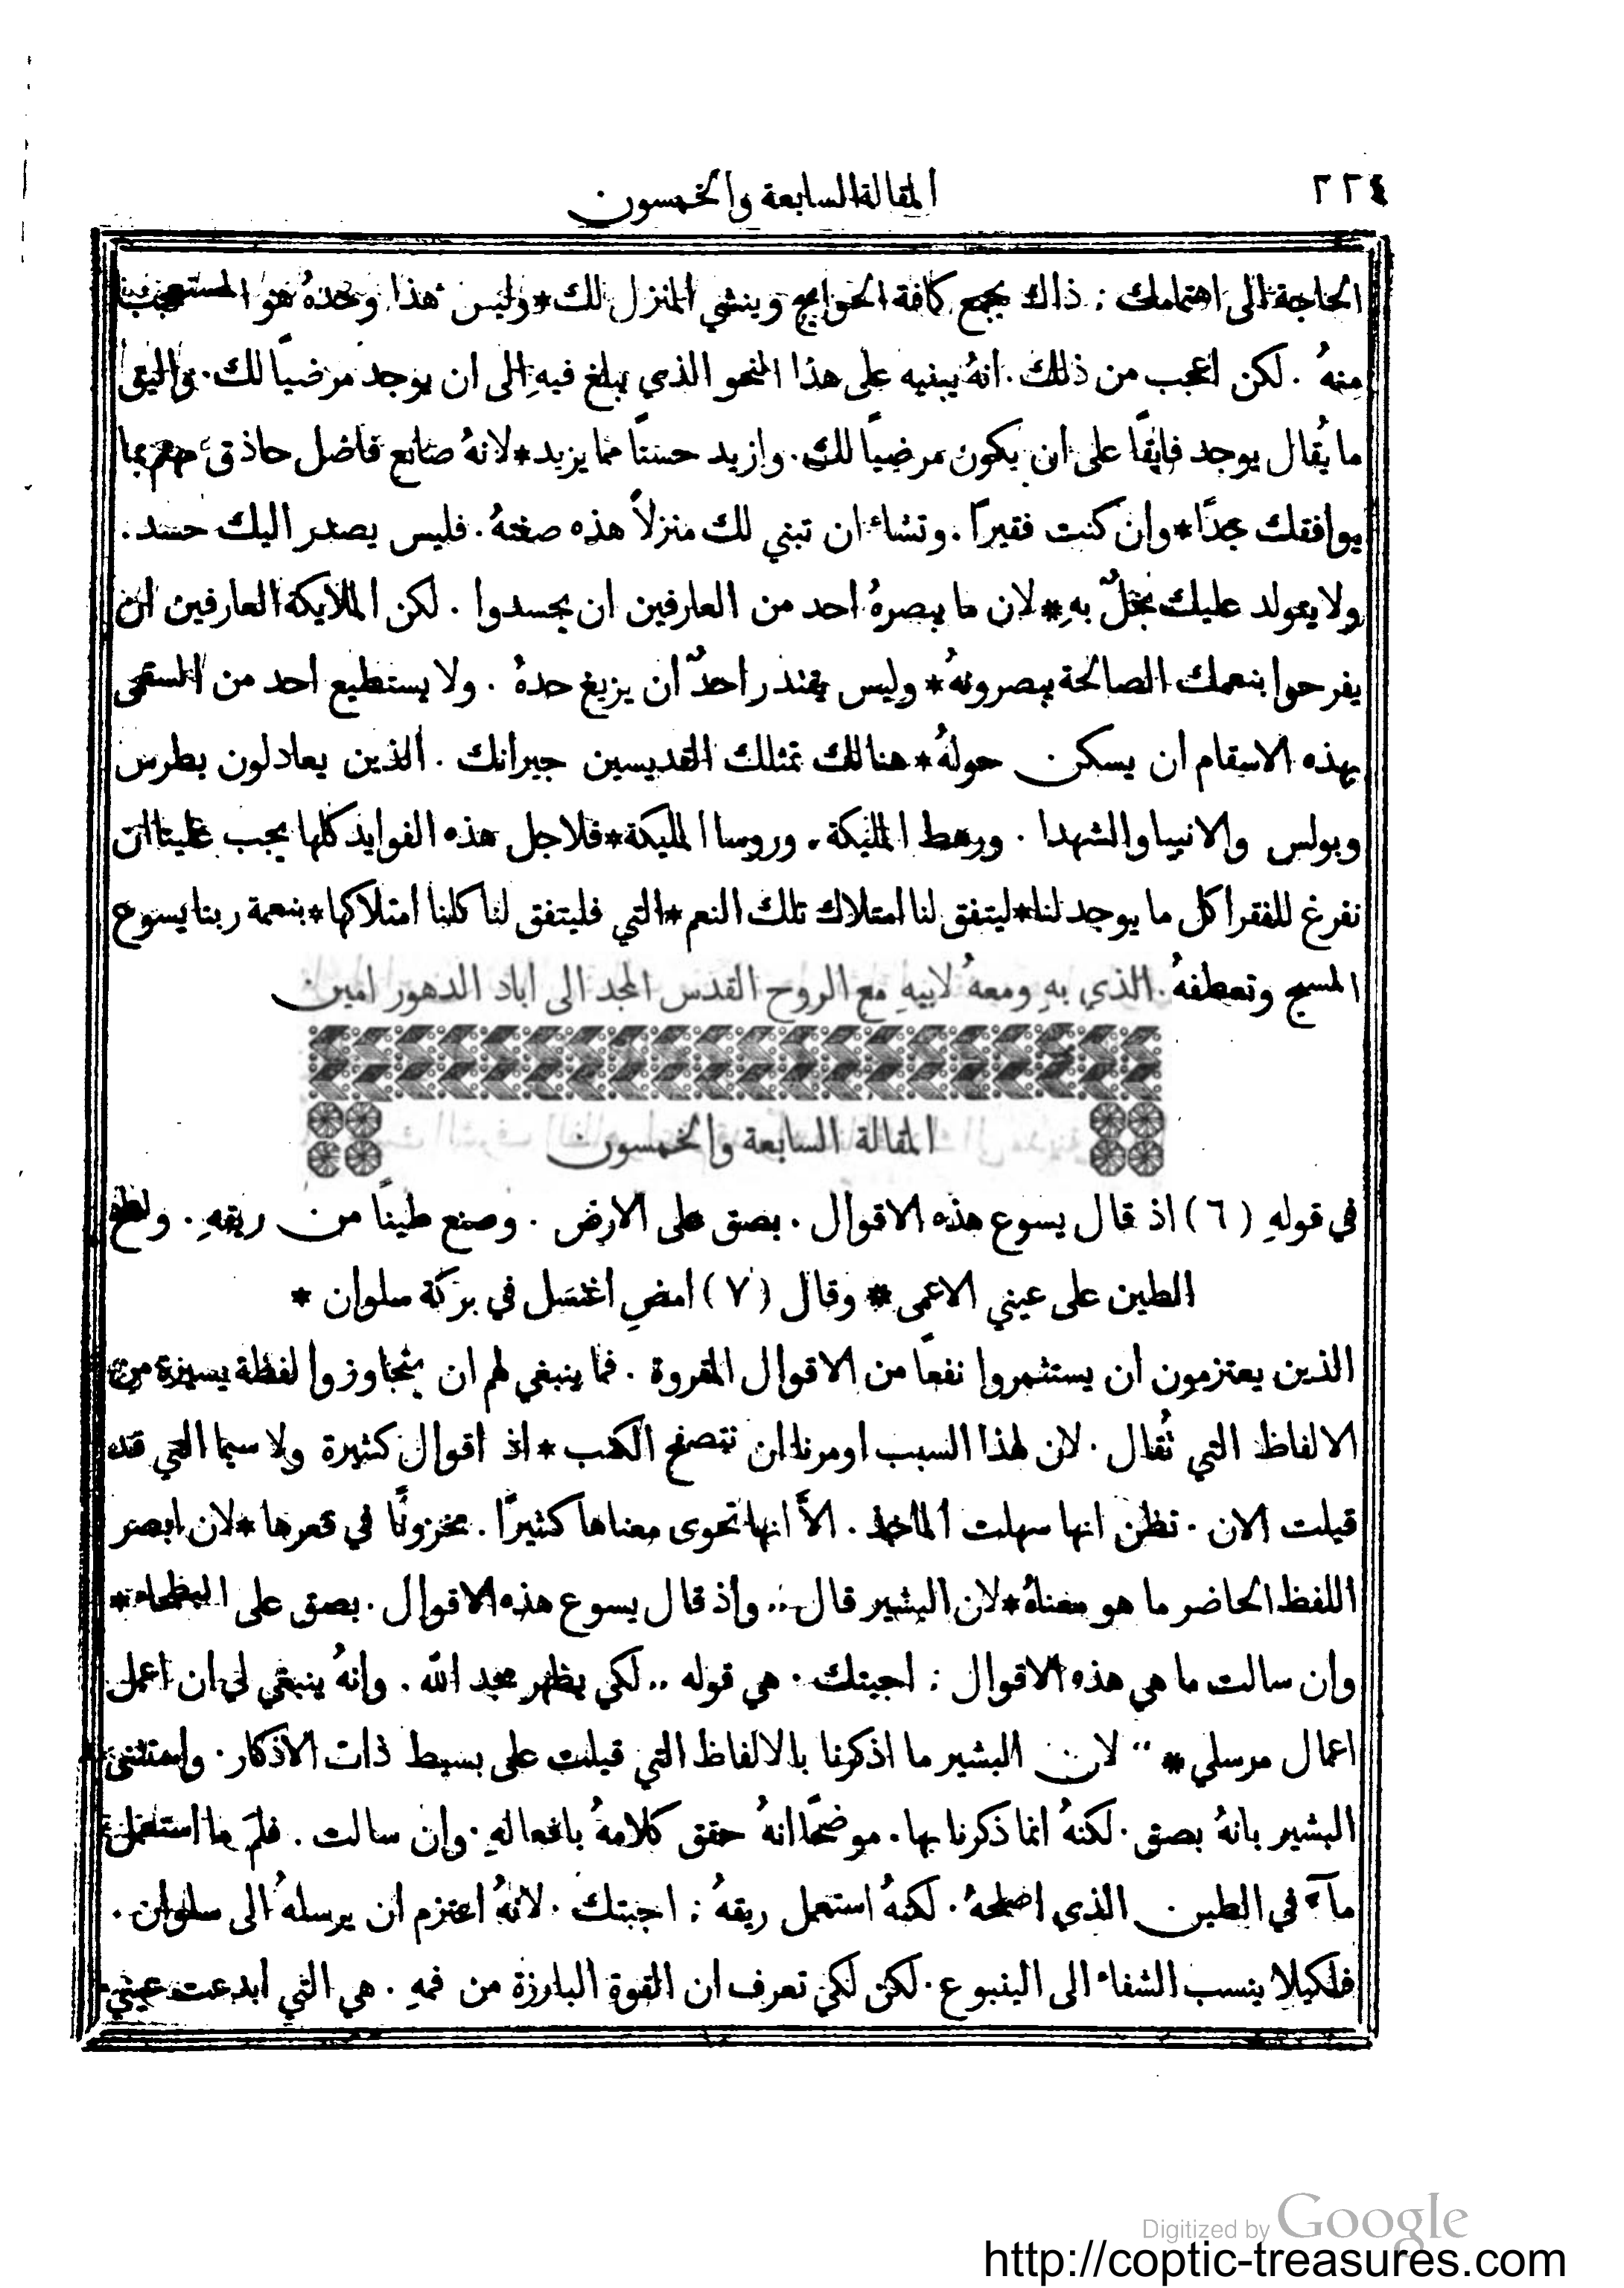 ٢٢٤
المقالة السابعة والخمسون
الحاجة الى اهتمامك : ذاك يجمع كافة الحوايج وينشي المنزل لك * وليس هذا وحده هو المستعجب
منهُ . لكن اعجب من ذلك . انهُ يبنيه على هذا النحو الذي يبلغ فيهِ الى ان يوجد مرضيًا لك . واليق
ما يُقال يوجد فايقًا على ان يكون مرضيًا لك . وازيد حسنًا مما يزيد * لانهُ صانع فاضل حاذق مهتم بما
يوافقك جدًا * وان كنت فقيرًا . وتشاء ان تبني لك منزلاً هذه صفتهُ . فليس يصدر اليك حسد .
ولا يتولد عليك بخلٌ بهِ * لان ما يبصرهُ احد من العارفين ان يحسدوا . لكن الملايكة العارفين ان
يفرحوا بنعمك الصالحة يبصرونهُ * وليس يقتدر احدٌ ان يزيغ حدهُ . ولا يستطيع احد من السقمى
بهذه الاسقام ان يسكن حولهُ * هنالك تمثلك القديسين جيرانك . الذين يعادلون بطرس
وبولس والانبيا والشهدا . ورهط المليكة . وروسا المليكة * فلاجل هذه الفوايد كلها يجب علينا ان
نفرغ للفقرا كل ما يوجد لنا * ليتفق لنا امتلاك تلك النعم * التي فليتفق لنا كلنا امتلاكها * بنعمة ربنا يسوع
المسيح وتعطفهُ . الذي بهِ ومعهُ لابيهِ مع الروح القدس المجد الى اباد الدهور امين
المقالة السابعة والخمسون
في قولهِ ( ٦ ) اذ قال يسوع هذه الاقوال . بصق على الارض . وصنع طينًا من ريقهِ . ولطخ
الطين على عيني الاعمى * وقال ( ٧ ) امضِ اغتسل في بركة سلوان *
الذين يعتزمون ان يستثمروا نفعًا من الاقوال المقروة . فما ينبغي لهم ان يتجاوزوا لفظة يسيرة من
الالفاظ التي تُقال . لان لهذا السبب اومرنا ان نتصفح الكتب * اذ اقوال كثيرة ولا سيما التي قد
قيلت الان . تظن انها سهلت الماخذ . الاَّ انها تحوى معناها كثيرًا . مخزونًا في قعرها * لان ابصر
اللفظ الحاضر ما هو معناهُ * لان البشير قال .. واذ قال يسوع هذه الاقوال . بصق على البطحاء *
وان سالت ما هي هذه الاقوال : اجبتك . هي قوله .. لكي يظهر مجد الله . وانهُ ينبغي لي ان اعمل
اعمال مرسلي * " لان البشير ما اذكرنا بالالفاظ التي قيلت على بسيط ذات الاذكار . واستثنى
البشير بانهُ بصق . لكنهُ انما ذكرنا بها . موضحًا انهُ حقق كلامهُ بافعالهِ . وان سالت . فلمَ ما استعمل
مآء في الطين الذي اصلحهُ . لكنهُ استعمل ريقهُ : اجبتك . لانهُ اعتزم ان يرسلهُ الى سلوان .
فلكيلا ينسب الشفاء الى الينبوع . لكن لكي تعرف ان القوة البارزة من فمهِ . هي التي ابدعت عيني
Digitized by Google
http://coptic-treasures.com